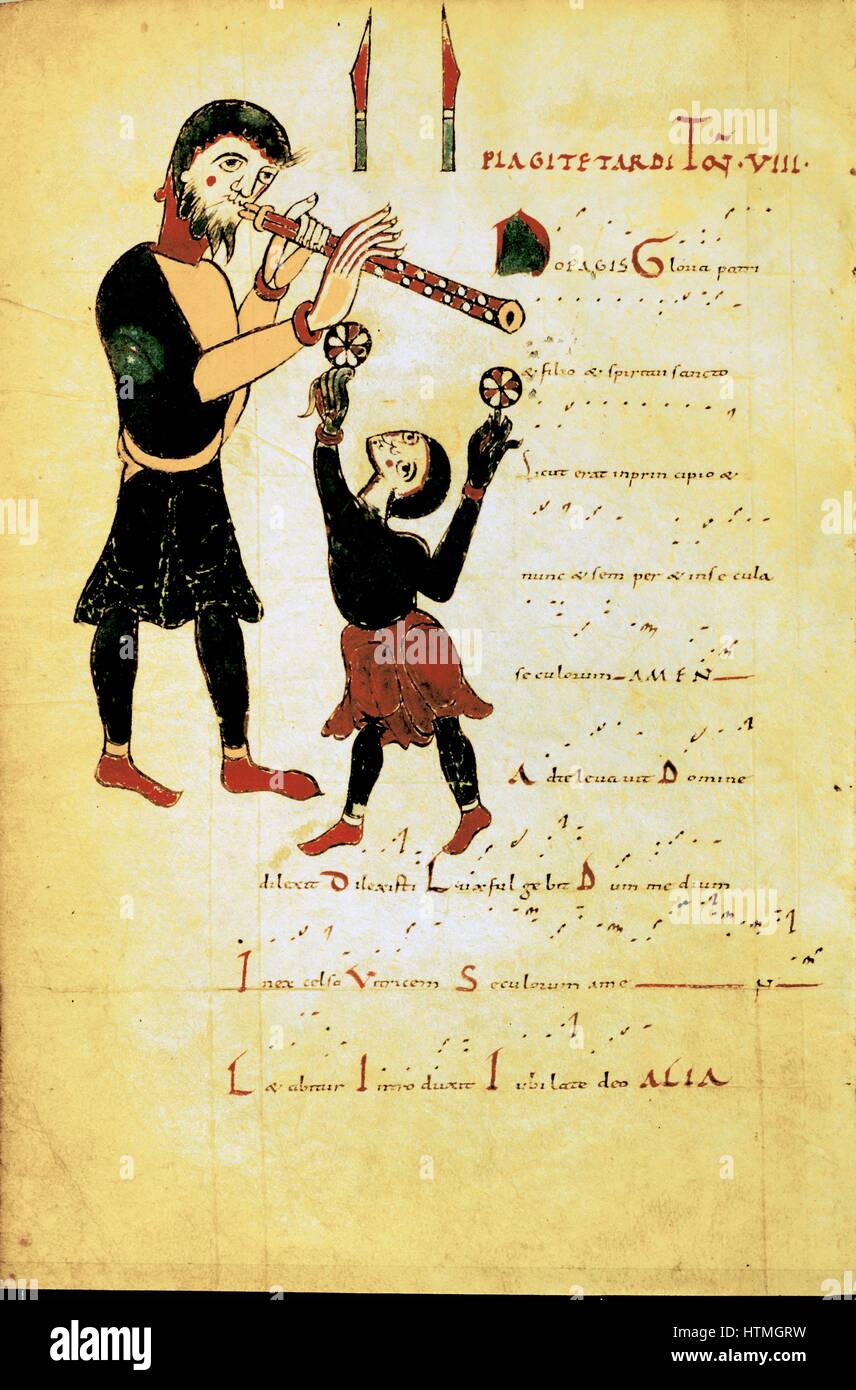 PLAGITETARDI TON̄·VIII·
NOEAGIS Gloria patri
& filio & spiritui sancto
Sicut erat inprin cipio &
nunc & sem per & inse cula
seculorum AMEN
Adteleuauit Domine
dilexit Dilexisti Lux fulgebit Dum medium
Inexcelso Victricem Seculorum ame N
L&abitur Introduxit Iubilate deo ALIA
a alamy stock photo
alamy
HTMGRW
www.alamy.com